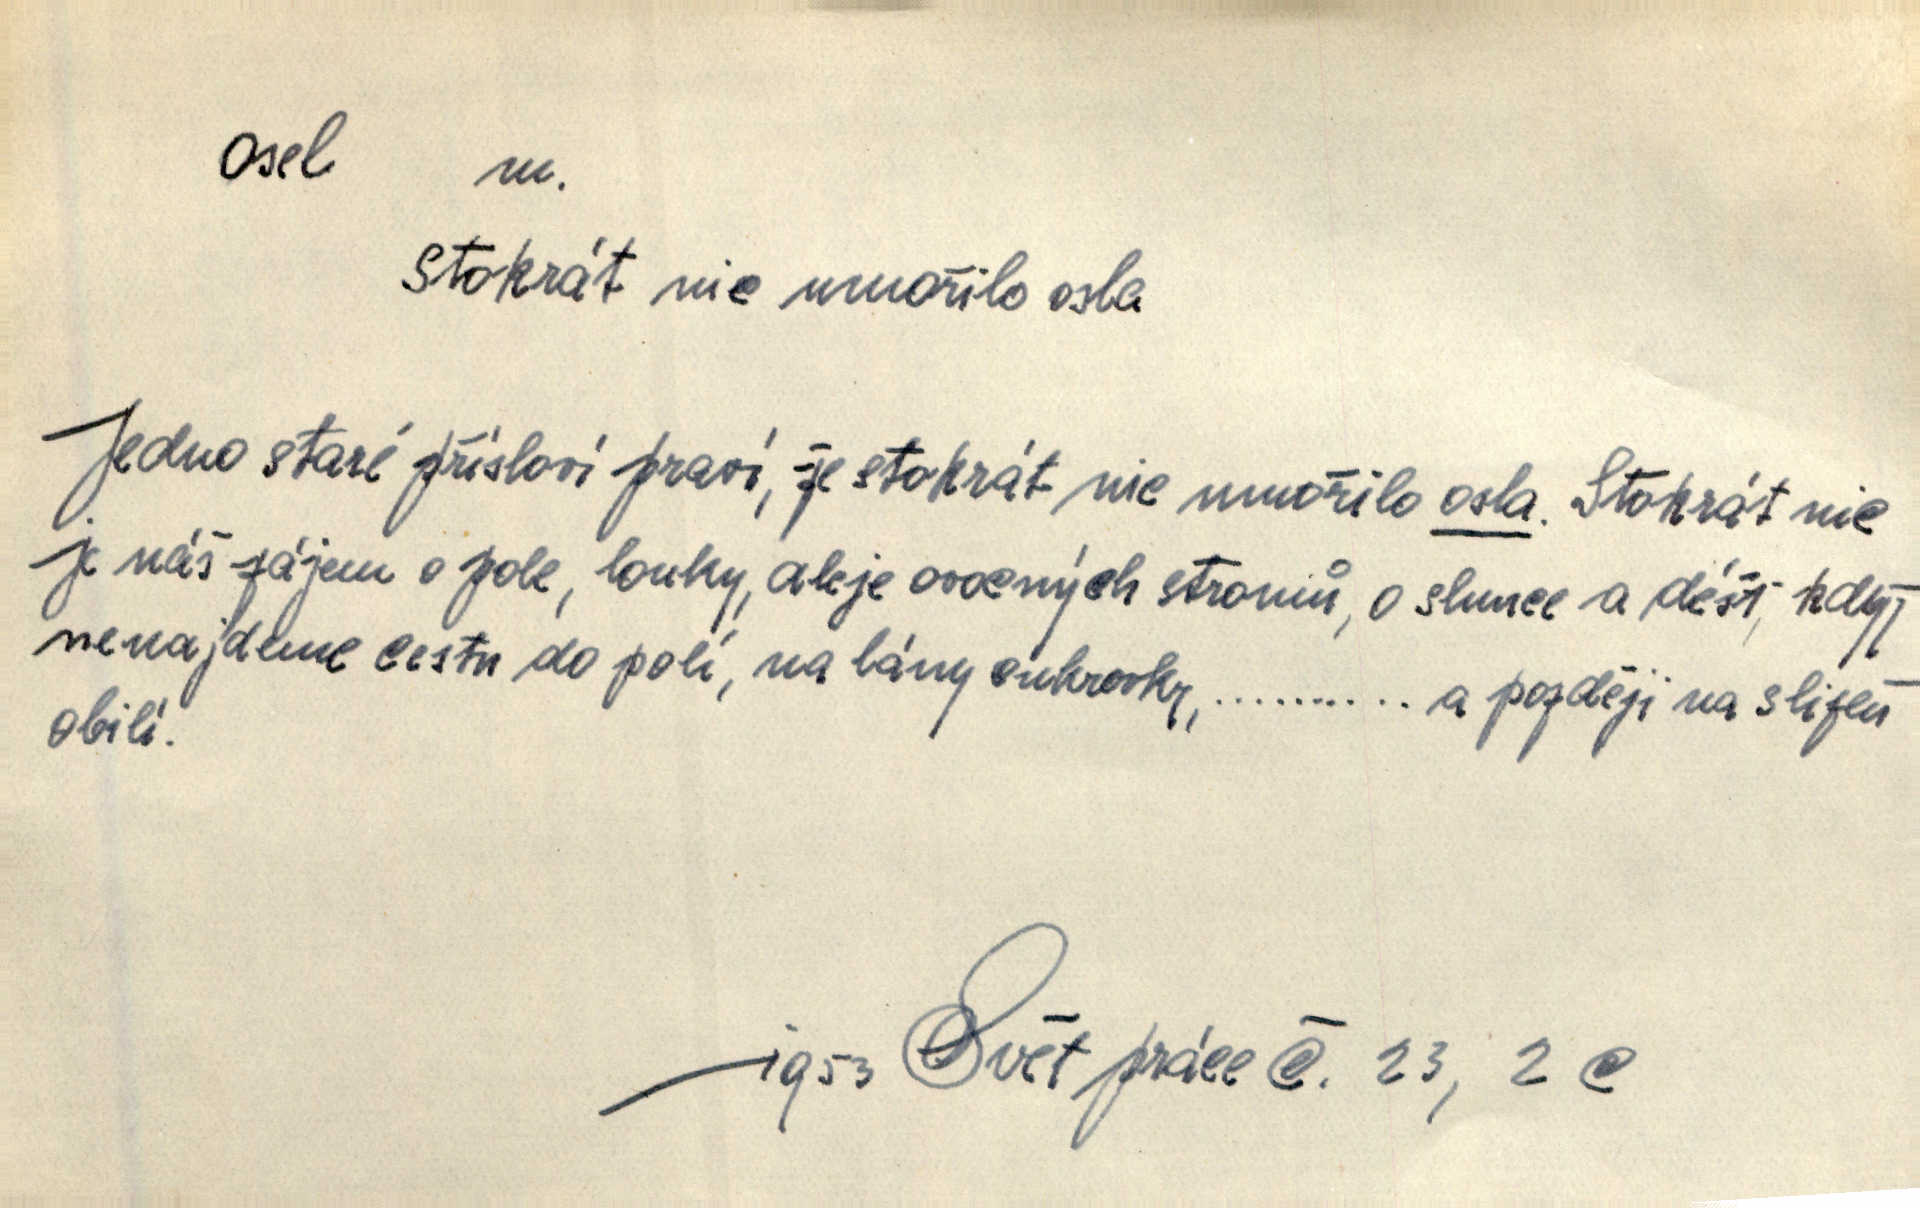 osel m.
stokrát nic umořilo osla
Jedno staré přísloví praví, že stokrát nic umořilo osla. Stokrát nic
je náš zájem o pole, louky, aleje ovocných stromů, o slunce a déšť, když
nenajdeme cestu do polí, na lány cukrovky, .......... a později na sklizeň
obilí.
1953 Svět práce č. 23, 2 c